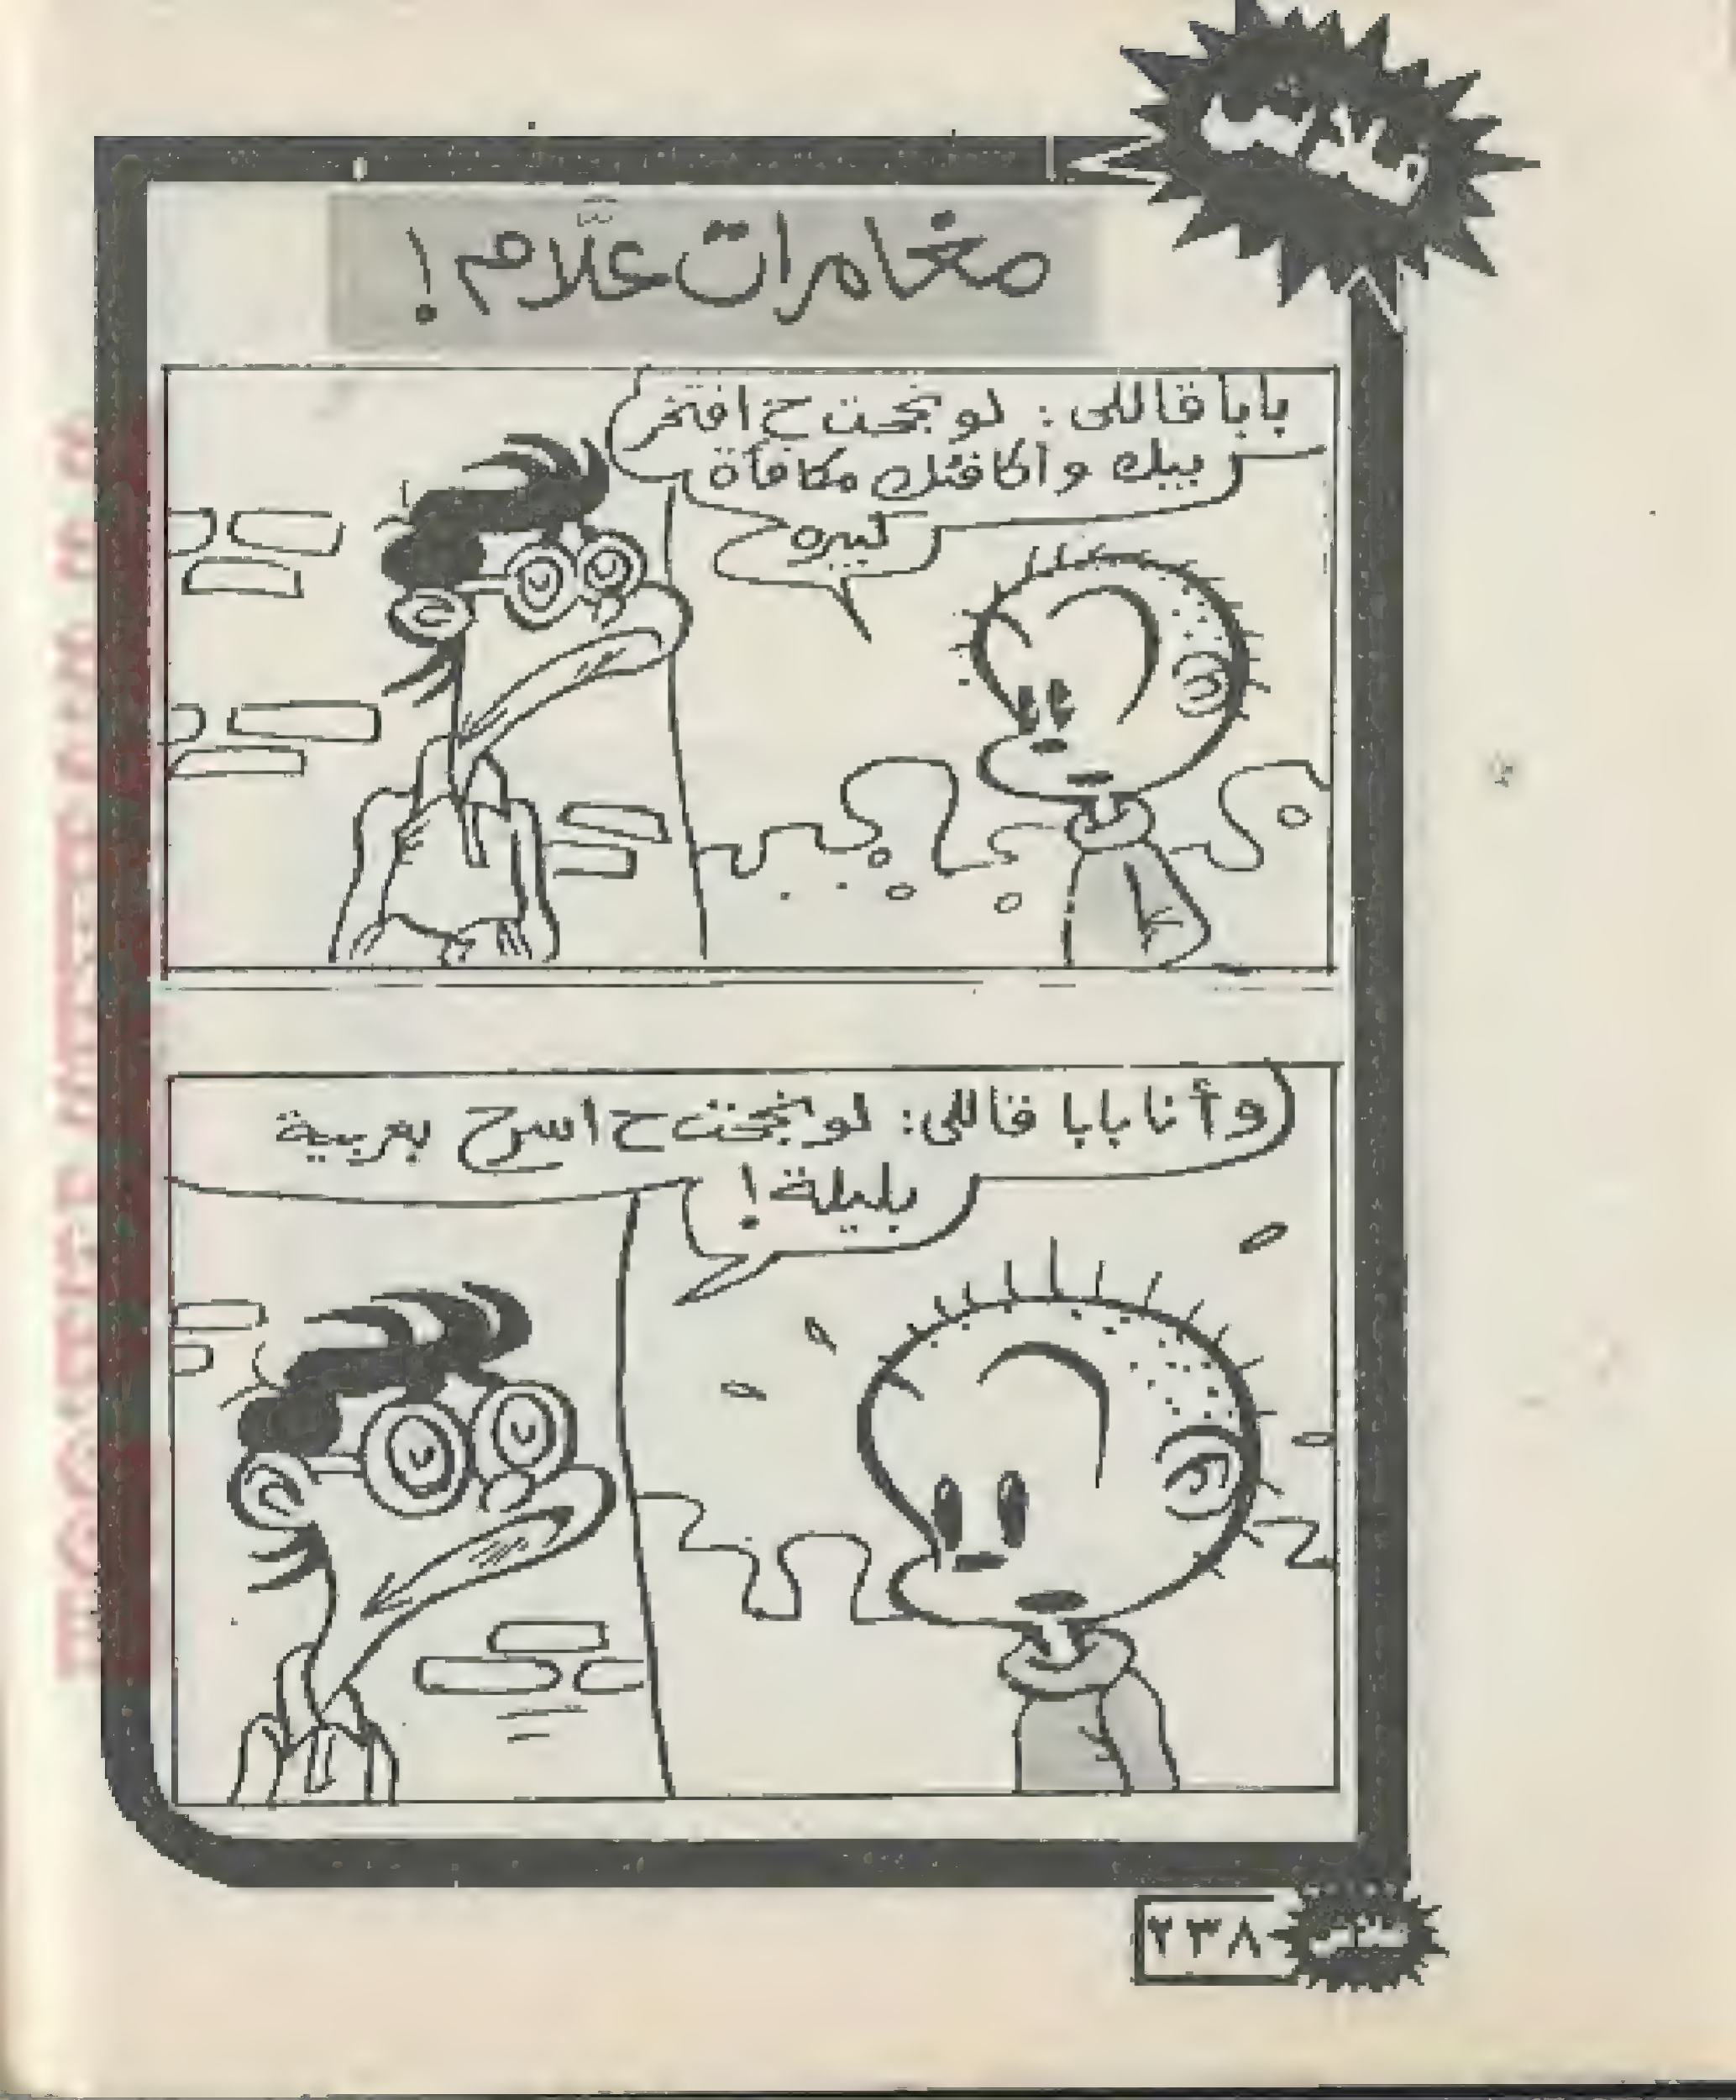 فلاش
مغامرات علَّام!
بابا قاللى: لو نجحت ح افتخر
بيك وأكافئك مكافأة
كبيره
وأنا بابا قاللى: لو نجحت ح اسرح بعربية
بليلة!
٢٣٨
فلاش